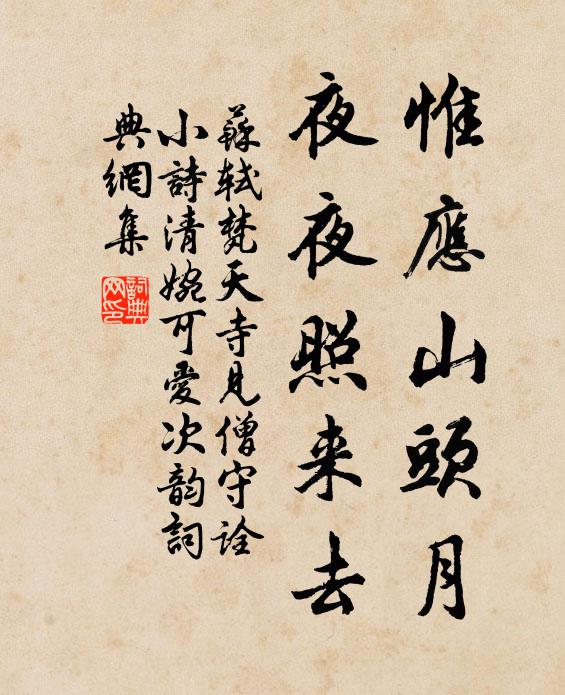 惟應山頭月
夜夜照来去
蘇軾梵天寺見僧守詮
小詩清婉可愛次韵詞
典網集
詞典
网印